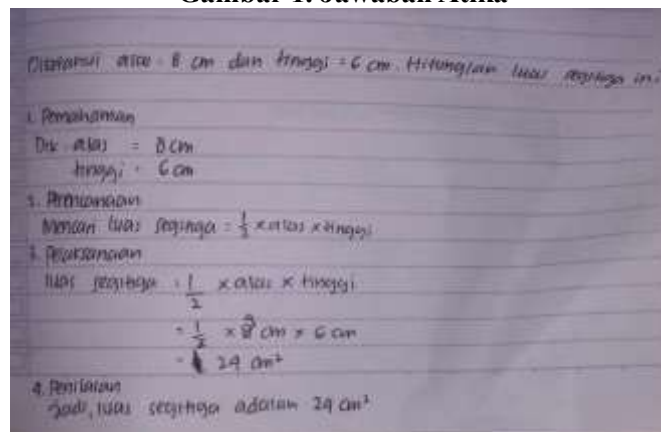 Gambar 1. Jawaban Atika
Diketahui alas = 8 cm dan tinggi = 6 cm. Hitunglah luas segitiga ini.
1. Pemahaman
Dik alas = 8 cm
tinggi = 6 cm
2. Perencanaan
Mencari luas segitiga = 1/2 x alas x tinggi
3. Pelaksanaan
luas segitiga = 1/2 x alas x tinggi
= 1/2 x 8 cm x 6 cm
= 24 cm²
4. Penilaian
Jadi, luas segitiga adalah 24 cm²